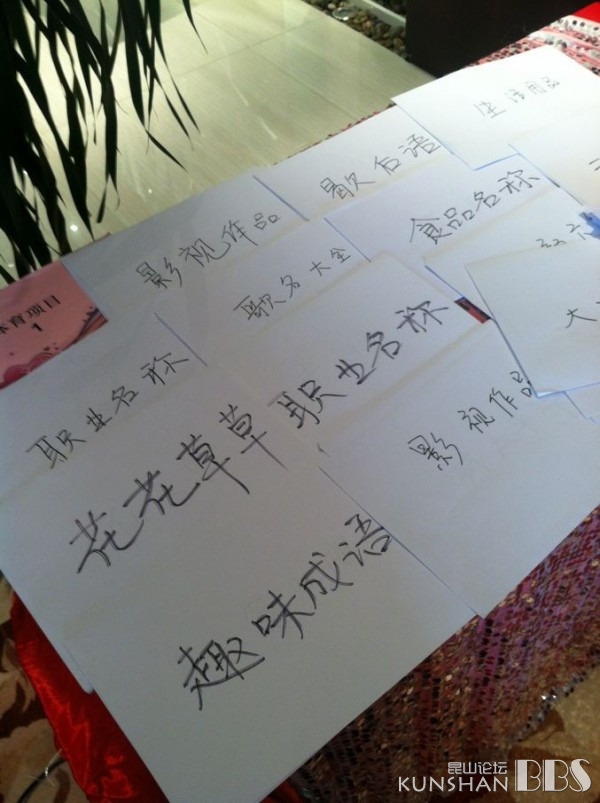 生活用品
歇后语
影视作品
食品名称
歌名大全
体育项目
1
职业名称
职业名称
影视作品
花花草草
趣味成语
大
昆山论坛
KUNSHAN BBS